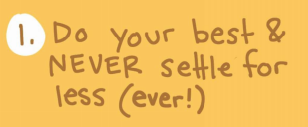 1. Do your best &
NEVER settle for
less (ever!)